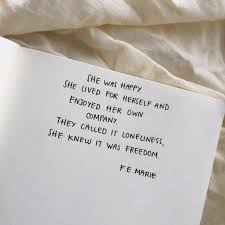 SHE WAS HAPPY.
SHE LIVED FOR HERSELF AND
ENJOYED HER OWN
COMPANY.
THEY CALLED IT LONELINESS,
SHE KNEW IT WAS FREEDOM.
F.E. MARIE